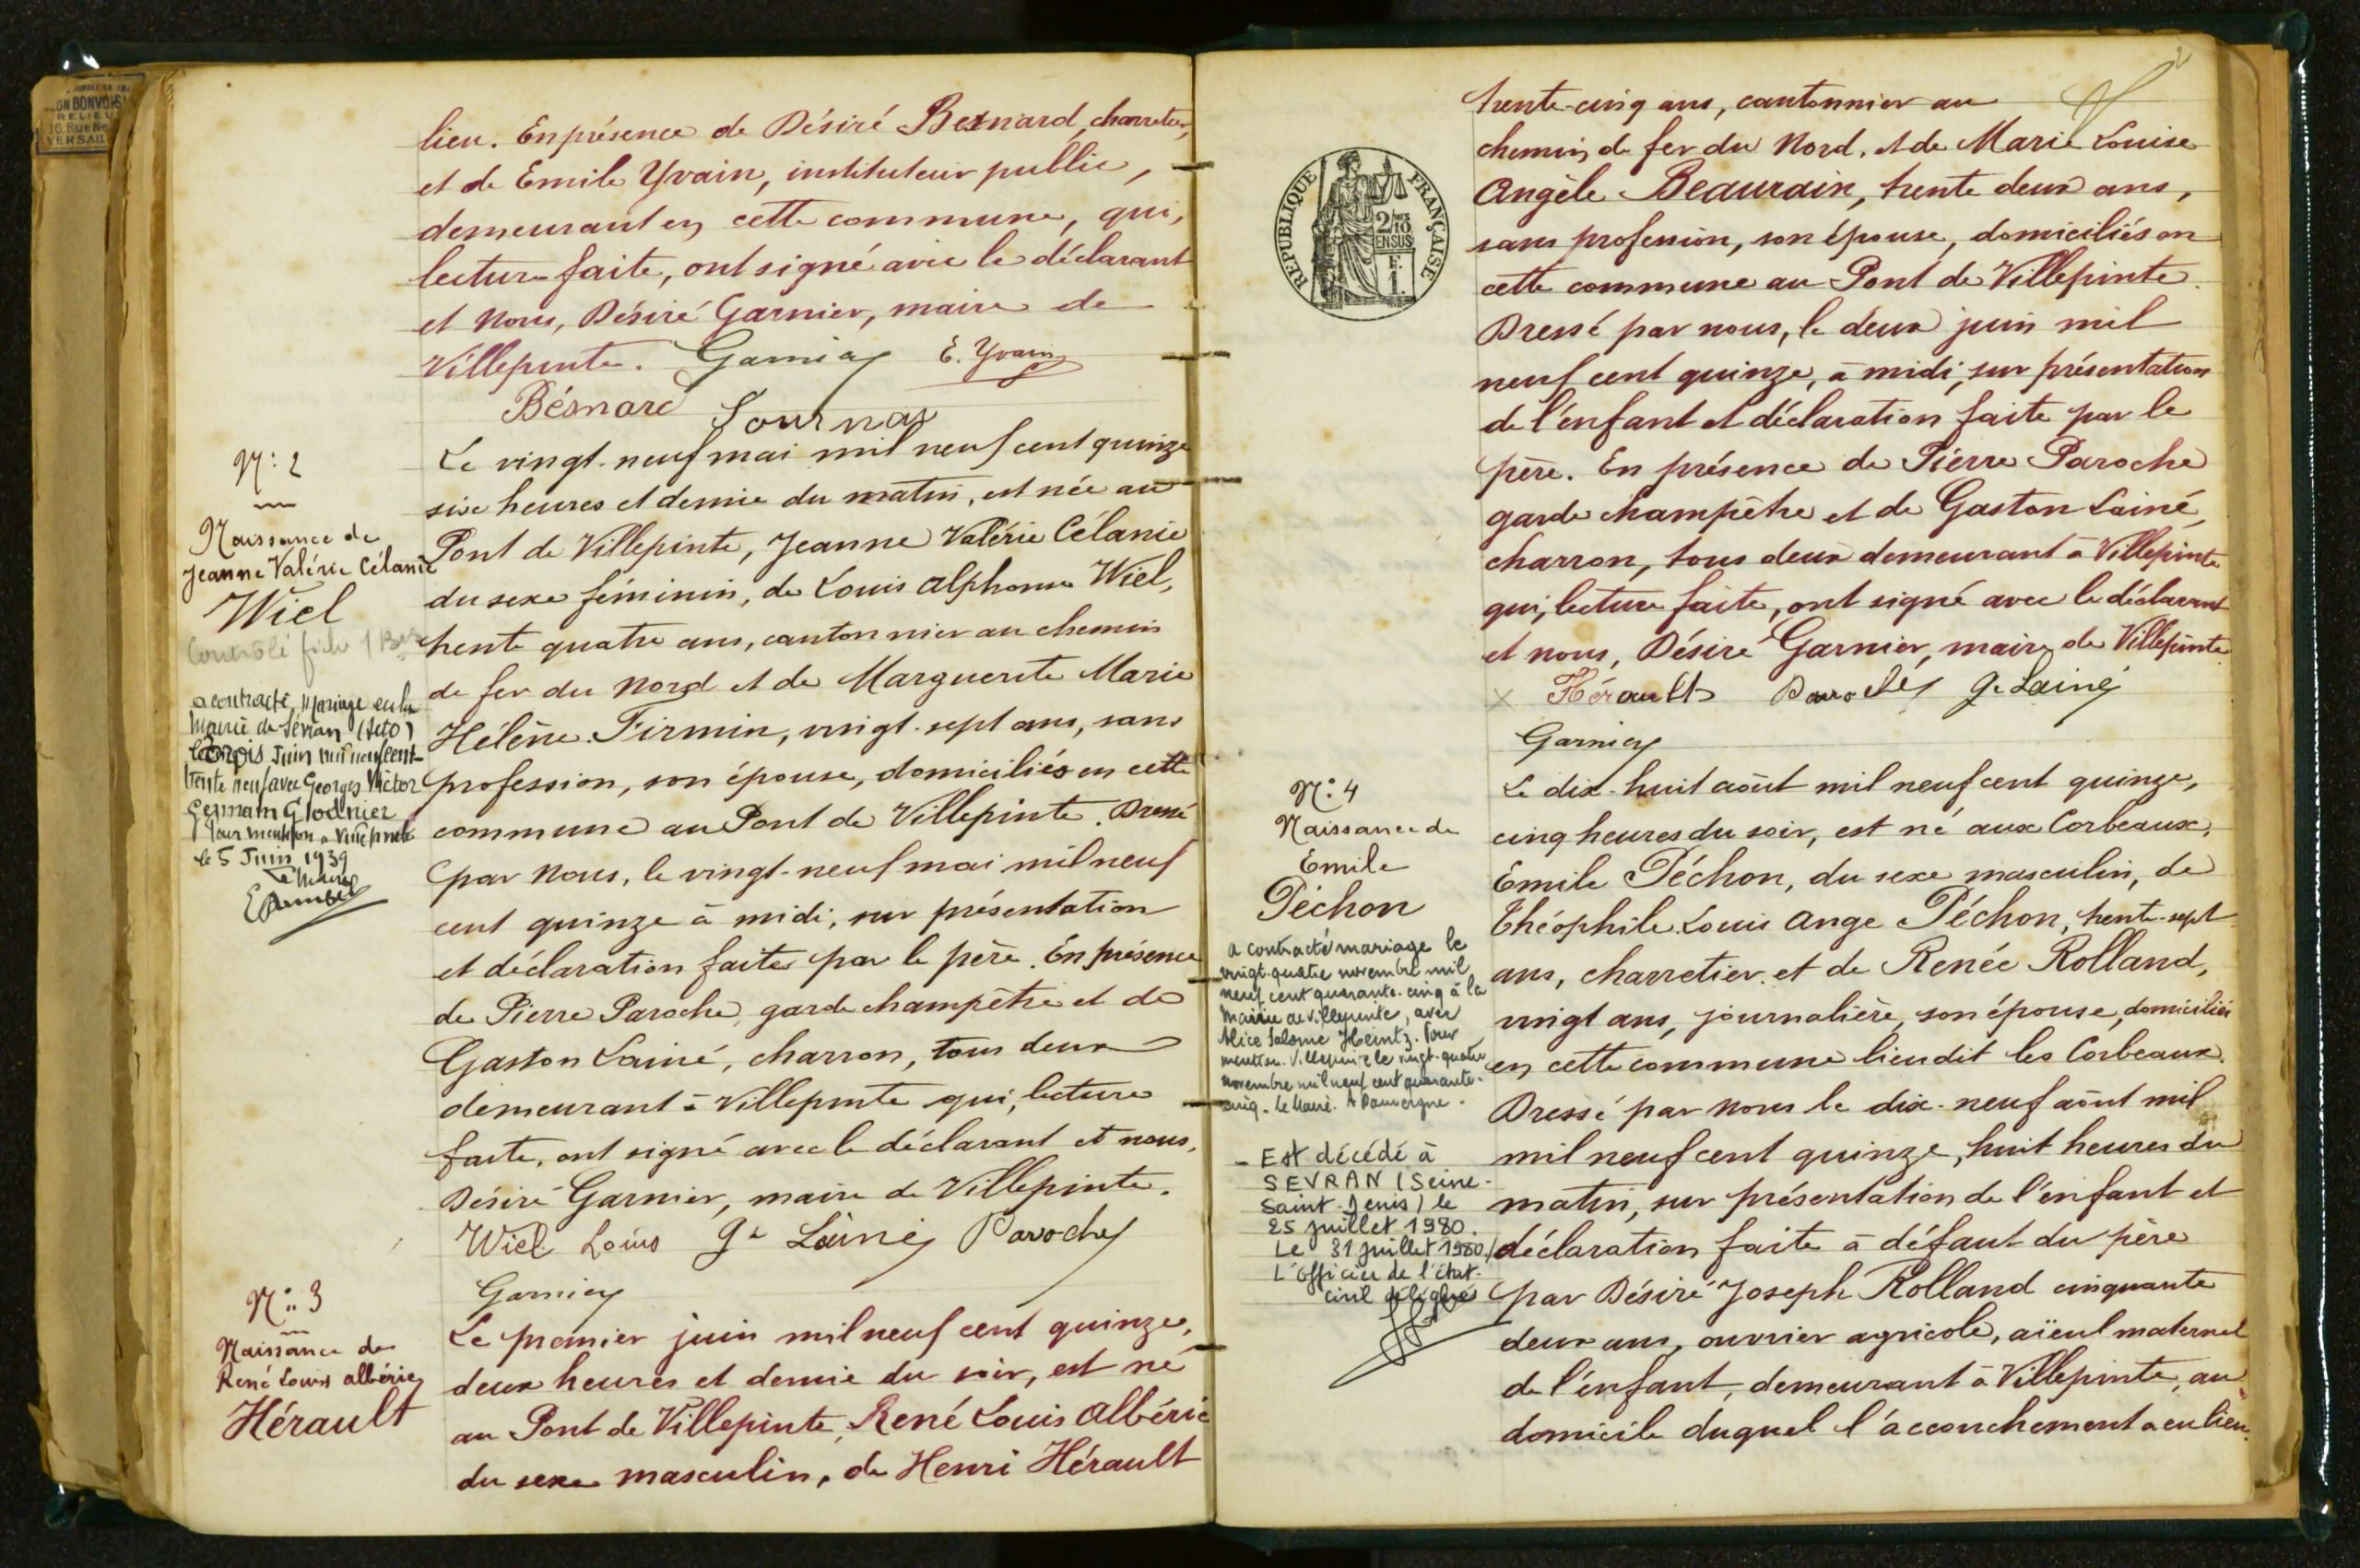 ON BONVOISI
RELIEU
16, Rue Ne
VERSAIL
lieu. En présence de Désiré Besnard, charretier,
et de Emile Yvain, instituteur public,
demeurant en cette commune, qui,
lecture faite, ont signé avec le déclarant
et Nous, Désiré Garnier, maire de
Villepinte. Garnier E. Yvain
Bésnard Tournay
N: 2
Naissance de
Jeanne Valérie Célanie
Wiel
Contrôlé fiche
a contracté Mariage en la
Mairie de Sevran (Seto)
le trois Juin mil neuf cent
trente neuf avec Georges Victor
Germain Glodnier
Pour mention à Villepinte
le 5 Juin 1939
Le Maire
Le vingt-neuf mai mil neuf cent quinze
six heures et demie du matin, est née au
Pont de Villepinte, Jeanne Valérie Célanie
du sexe féminin, de Louis Alphonse Wiel,
trente quatre ans, cantonnier au chemin
de fer du Nord et de Marguerite Marie
Hélène Firmin, vingt-sept ans, sans
profession, son épouse, domiciliés en cette
commune au Pont de Villepinte. Dressé
par Nous, le vingt-neuf mai mil neuf
cent quinze à midi, sur présentation
et déclaration faites par le père. En présence
de Pierre Paroche, garde champêtre et de
Gaston Lainé, charron, tous deux
demeurant à Villepinte qui, lecture
faite, ont signé avec le déclarant et nous,
Désiré Garnier, maire de Villepinte.
Wiel Louis Gn Lainé Paroche
Garnier
N: 3
Naissance de
René Louis Albéric
Hérault
Le premier juin mil neuf cent quinze,
deux heures et demie du soir, est né
au Pont de Villepinte, René Louis Albéric
du sexe masculin, de Henri Hérault
2
REPUBLIQUE FRANÇAISE
2/10
EN SUS
F.
1.
trente-cinq ans, cantonnier au
chemin de fer du Nord, et de Marie Louise
Angèle Beaurain, trente deux ans,
sans profession, son épouse, domiciliés en
cette commune au Pont de Villepinte.
Dressé par nous, le deux juin mil
neuf cent quinze, à midi, sur présentation
de l'enfant et déclaration faite par le
père. En présence de Pierre Paroche
garde champêtre et de Gaston Lainé,
charron, tous deux demeurant à Villepinte
qui, lecture faite, ont signé avec le déclarant
et nous, Désiré Garnier, maire de Villepinte.
Hérault Paroche G. Lainé
Garnier
N: 4
Naissance de
Emile
Péchon
a contracté mariage le
vingt-quatre novembre mil
neuf cent quarante-cinq à la
Mairie de Villepinte, avec
Alice Salomé Heintz. Pour
mention. Villepinte le vingt-quatre
novembre mil neuf cent quarante-
cinq. Le Maire. A Dauvergne.
- Est décédé à
SEVRAN (Seine-
Saint-Denis) le
25 juillet 1980.
Le 31 juillet 1980/
L'officier de l'état-
civil délégué
Le dix-huit août mil neuf cent quinze,
cinq heures du soir, est né aux Corbeaux,
Emile Péchon, du sexe masculin, de
Théophile Louis Ange Péchon, trente-sept
ans, charretier et de Renée Rolland,
vingt ans, journalière, son épouse, domiciliés
en cette commune lieudit les Corbeaux.
Dressé par nous le dix-neuf août mil
mil neuf cent quinze, huit heures du
matin, sur présentation de l'enfant et
déclaration faite à défaut du père
par Désiré Joseph Rolland cinquante
deux ans, ouvrier agricole, aïeul maternel
de l'enfant, demeurant à Villepinte, au
domicile duquel l'accouchement a eu lieu.